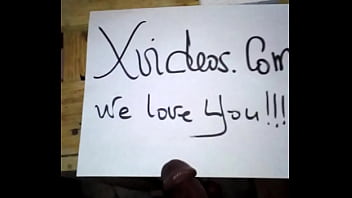 Xvideos.Com
We love you!!!